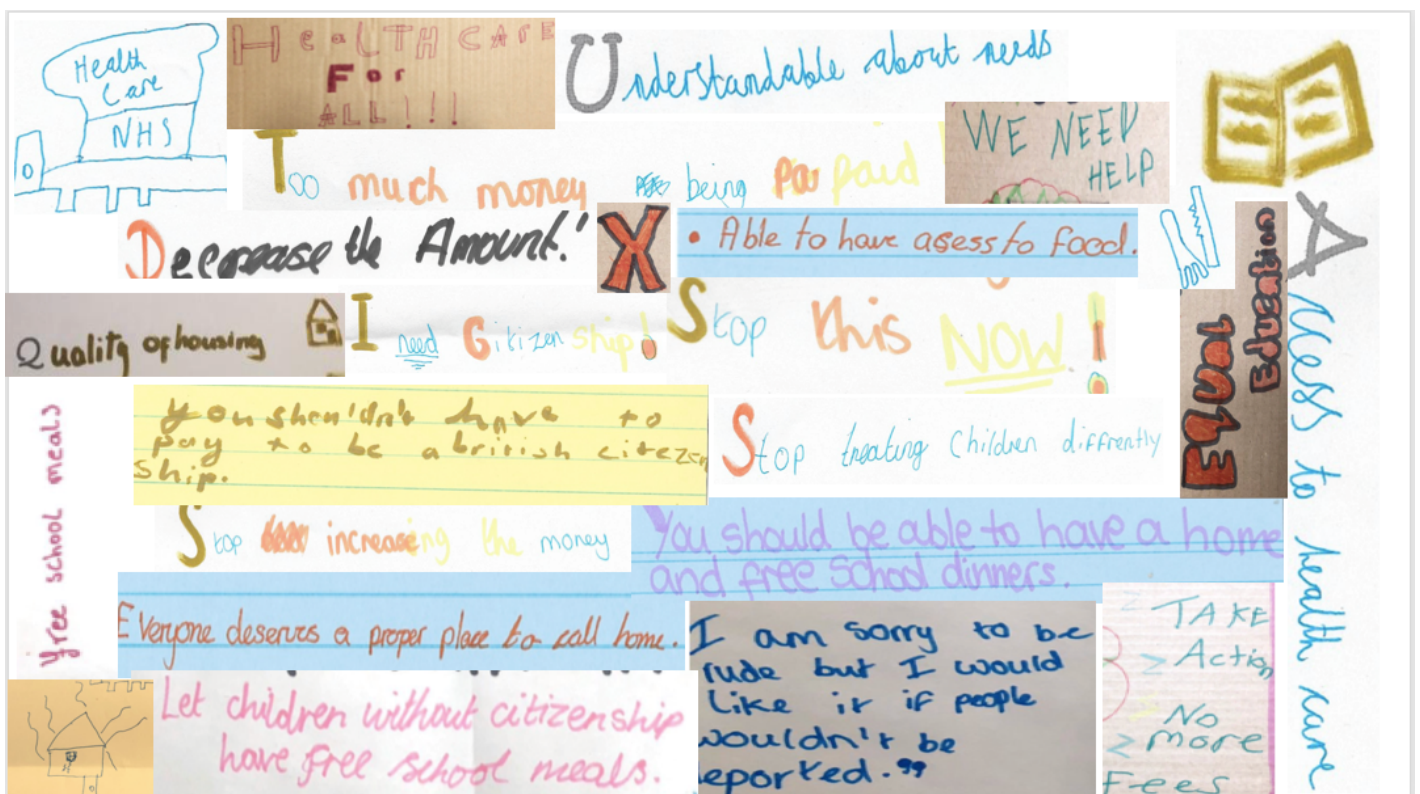 Health
Care
NHS
HeaLTH CARE
For
ALL!!!
Understandable about needs
Too much money being paid
WE NEED
HELP
Decrease the Amount!
X
• Able to have asess to food.
Quality of housing
I need Citizen ship!
Stop this NOW!
Equal
Education
Access to health care
Free school meals
You shouldn't have to
pay to be a british citezen
ship.
Stop treating Children diffrently
Stop increaseing the money
You should be able to have a home
and free School dinners.
Everyone deserves a proper place to call home.
I am sorry to be
rude but I would
like it if people
wouldn't be
eported."
TAKE
Action
No
more
Fees
Let children without citizenship
have free school meals.